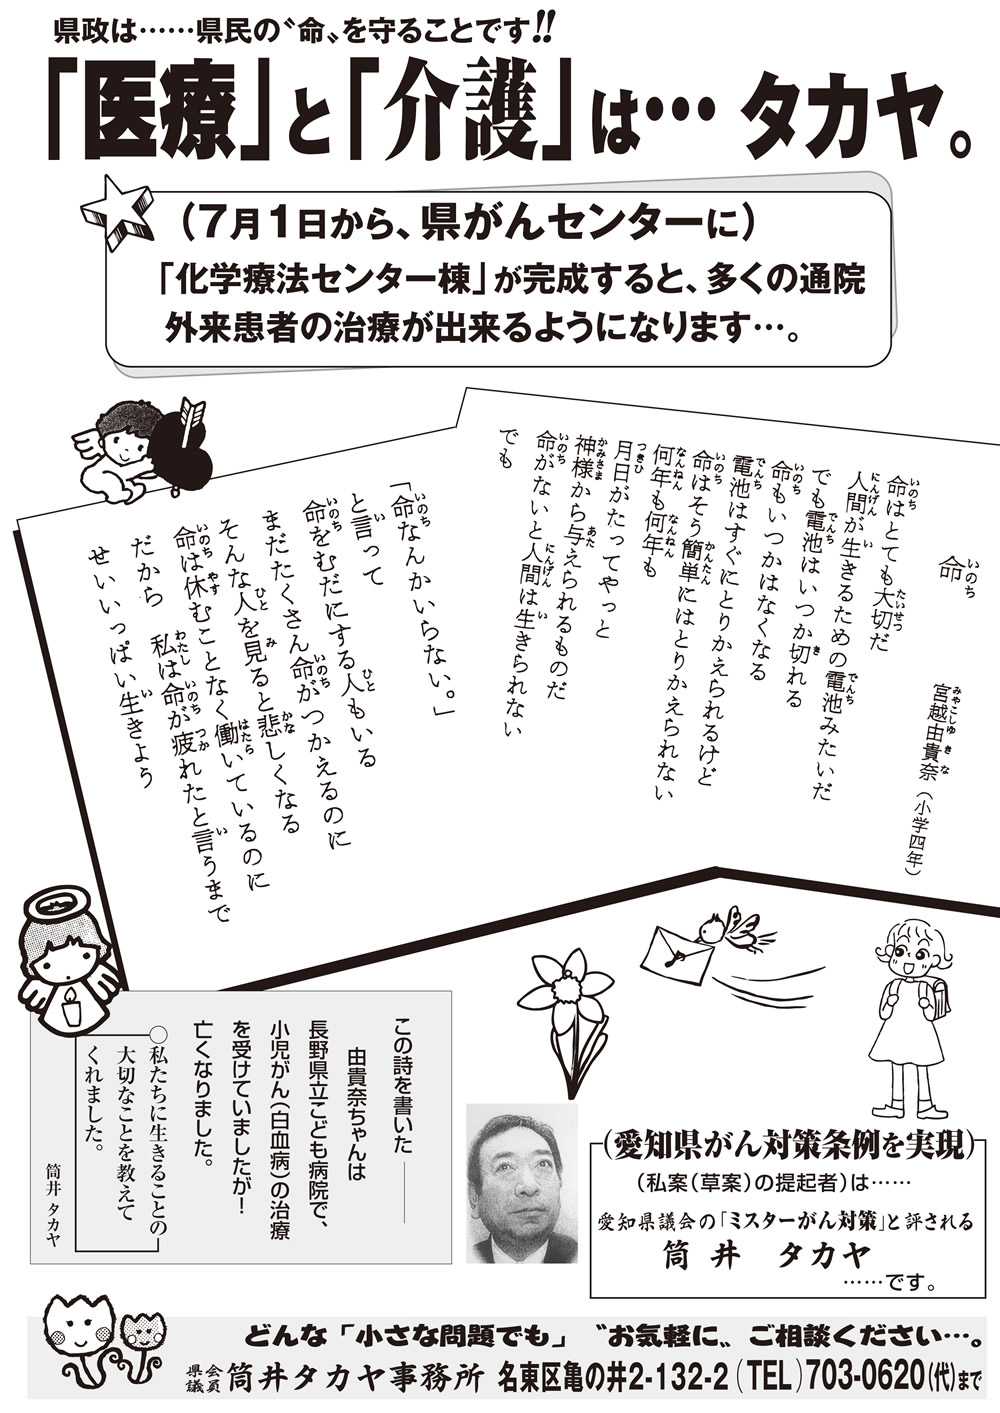 県政は……県民の〝命〟を守ることです!!
「医療」と「介護」は… タカヤ。
(7月1日から、県がんセンターに)
「化学療法センター棟」が完成すると、多くの通院
外来患者の治療が出来るようになります…。
命 宮越由貴奈(小学四年)
いのち みやこしゆきな
命はとても大切だ
いのち たいせつ
人間が生きるための電池みたいだ
にんげん い でんち
でも電池はいつか切れる
でんち き
命もいつかはなくなる
いのち
電池はすぐにとりかえられるけど
でんち
命はそう簡単にはとりかえられない
いのち かんたん
何年も何年も
なんねん なんねん
月日がたってやっと
つきひ
神様から与えられるものだ
かみさま あた
命がないと人間は生きられない
いのち にんげん い
でも
「命なんかいらない。」
いのち
と言って
い
命をむだにする人もいる
いのち ひと
まだたくさん命がつかえるのに
いのち
そんな人を見ると悲しくなる
ひと み かな
命は休むことなく働いているのに
いのち やす はたら
だから 私は命が疲れたと言うまで
わたし いのち つか い
せいいっぱい生きよう
い
この詩を書いた――
由貴奈ちゃんは
長野県立こども病院で、
小児がん(白血病)の治療
を受けていましたが!
亡くなりました。
○私たちに生きることの
大切なことを教えて
くれました。
筒井 タカヤ
(愛知県がん対策条例を実現)
(私案(草案)の提起者)は……
愛知県議会の「ミスターがん対策」と評される
筒井 タカヤ
……です。
どんな「小さな問題でも」〝お気軽に〟ご相談ください…。
県会議員 筒井タカヤ事務所 名東区亀の井2-132-2(TEL)703-0620(代)まで